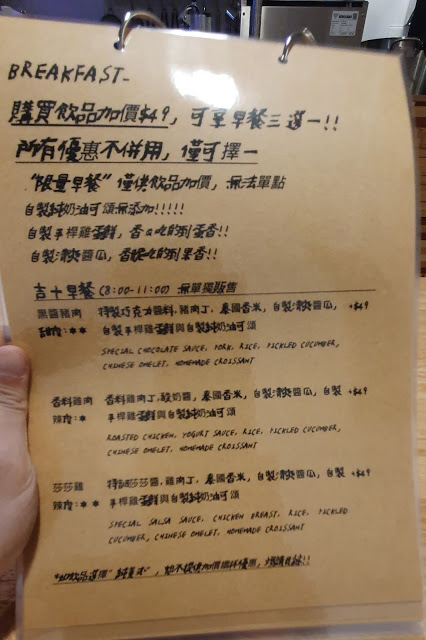 BREAKFAST-
購買飲品加價$49, 可享早餐三選一!!
所有優惠不併用, 僅可擇一
"限量早餐" 僅供飲品加價, 無法單點
自製純奶油可頌無添加!!!!!
自製手桿雞蛋餅, 香Q吃的到蛋香!!
自製漬爽醬瓜, 香吃的到果香!!
吉十早餐 (8:00-11:00) 無單獨販售
黑醬豬肉 特製巧克力醬料, 豬肉丁, 泰國香米, 自製漬爽醬瓜, +$49
甜度:* 自製手桿雞蛋餅與自製純奶油可頌
SPECIAL CHOCOLATE SAUCE, PORK, RICE, PICKLED CUCUMBER,
CHINESE OMELET, HOMEMADE CROISSANT
香料雞肉 香料雞肉丁, 酸奶醬, 泰國香米, 自製漬爽醬瓜, 自製 +$49
辣度:* 手桿雞蛋餅與自製純奶油可頌
ROASTED CHICKEN, YOGURT SAUCE, RICE, PICKLED CUCUMBER,
CHINESE OMELET, HOMEMADE CROISSANT
莎莎雞 特調莎莎醬, 雞肉丁, 泰國香米, 自製漬爽醬瓜, 自製 +$49
辣度:** 手桿雞蛋餅與自製純奶油可頌
SPECIAL SALSA SAUCE, CHICKEN BREAST, RICE, PICKLED
CUCUMBER, CHINESE OMELET, HOMEMADE CROISSANT
飲品選擇" 純美式", 恕不提供加價 優惠, 敬請見諒!!